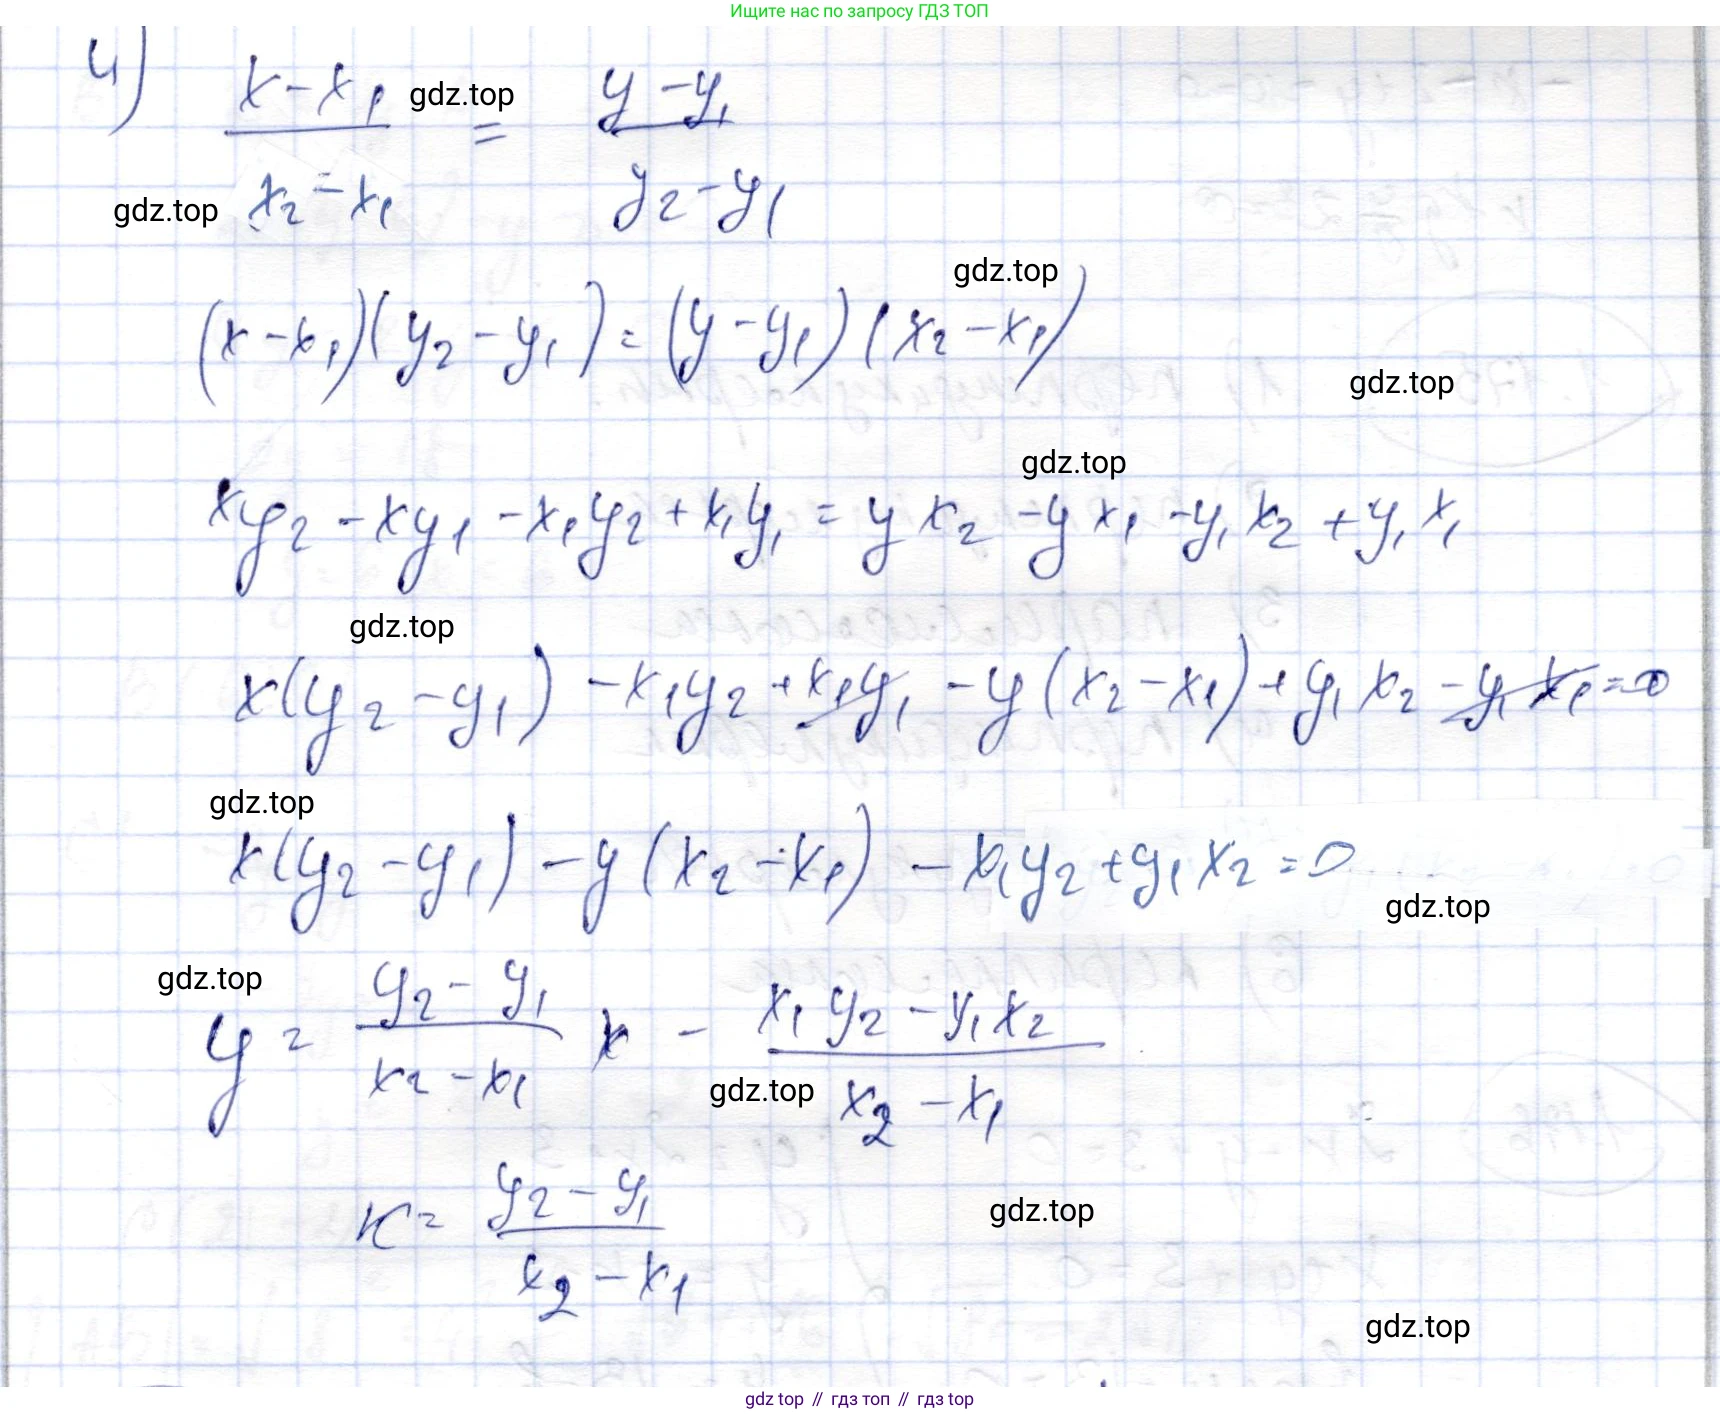 Ищите нас по запросу ГДЗ ТОП
4) (x - x₁)/(x₂ - x₁) = (y - y₁)/(y₂ - y₁)
gdz.top
gdz.top
gdz.top
(x - x₁)(y₂ - y₁) = (y - y₁)(x₂ - x₁)
gdz.top
gdz.top
xy₂ - xy₁ - x₁y₂ + x₁y₁ = yx₂ - yx₁ - y₁x₂ + y₁x₁
gdz.top
x(y₂ - y₁) - x₁y₂ + x₁y₁ - y(x₂ - x₁) + y₁x₂ - y₁x₁ = 0
gdz.top
x(y₂ - y₁) - y(x₂ - x₁) - x₁y₂ + y₁x₂ = 0
gdz.top
gdz.top
y = (y₂ - y₁)/(x₂ - x₁) x - (x₁y₂ - y₁x₂)/(x₂ - x₁)
gdz.top
к = (y₂ - y₁)/(x₂ - x₁)
gdz.top
gdz.top
gdz top // гдз топ // гдз top